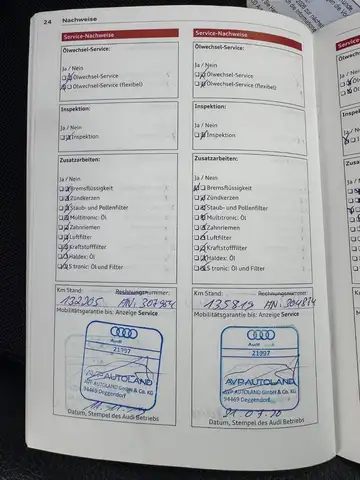 24 Nachweise
Service-Nachweise
Ölwechsel-Service:
Ja / Nein
Ölwechsel-Service
Ölwechsel-Service (flexibel)
Inspektion:
Ja / Nein
Inspektion
Zusatzarbeiten:
Ja / Nein
Bremsflüssigkeit
Zündkerzen
Staub- und Pollenfilter
Multitronic: Öl
Zahnriemen
Luftfilter
Kraftstofffilter
Haldex: Öl
S tronic: Öl und Filter
Km Stand: Rechnungsnummer:
132205
Mobilitätsgarantie bis: Anzeige Service
Audi
21397
AVP AUTOLAND
AVP AUTOLAND GmbH & Co. KG
94469 Deggendorf
Datum, Stempel des Audi Betriebs
Service-Nachweise
Ölwechsel-Service:
Ja / Nein
Ölwechsel-Service
Ölwechsel-Service (flexibel)
Inspektion:
Ja / Nein
Inspektion
Zusatzarbeiten:
Ja / Nein
Bremsflüssigkeit
Zündkerzen
Staub- und Pollenfilter
Multitronic: Öl
Zahnriemen
Luftfilter
Kraftstofffilter
Haldex: Öl
S tronic: Öl und Filter
Km Stand: Rechnungsnummer:
135819
Mobilitätsgarantie bis: Anzeige Service
Audi
21397
AVP AUTOLAND
AVP AUTOLAND GmbH & Co. KG
94469 Deggendorf
Datum, Stempel des Audi Betriebs